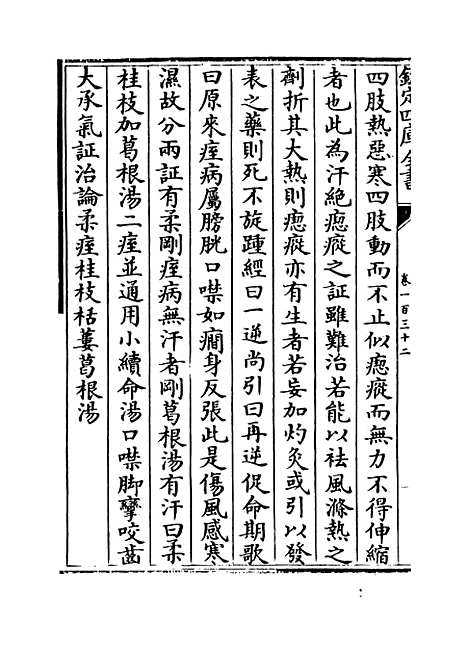 欽定四庫全書
卷一百三十二
四肢熱惡寒四肢動而不止似瘛瘲而無力不得伸縮
者也此為汗絶瘛瘲之証雖難治若能以祛風滌熱之
劑折其大熱則瘛瘲亦有生者若妄加灼灸或引以發
表之藥則死不旋踵經曰一逆尚引曰再逆促命期歌
曰原來痓病屬膀胱口噤如癎身反張此是傷風感寒
濕故分兩証有柔剛痓病無汗者剛葛根湯有汗曰柔
桂枝加葛根湯二痓並通用小續命湯口噤脚攣咬齒
大承氣証治論柔痓桂枝栝蔞葛根湯